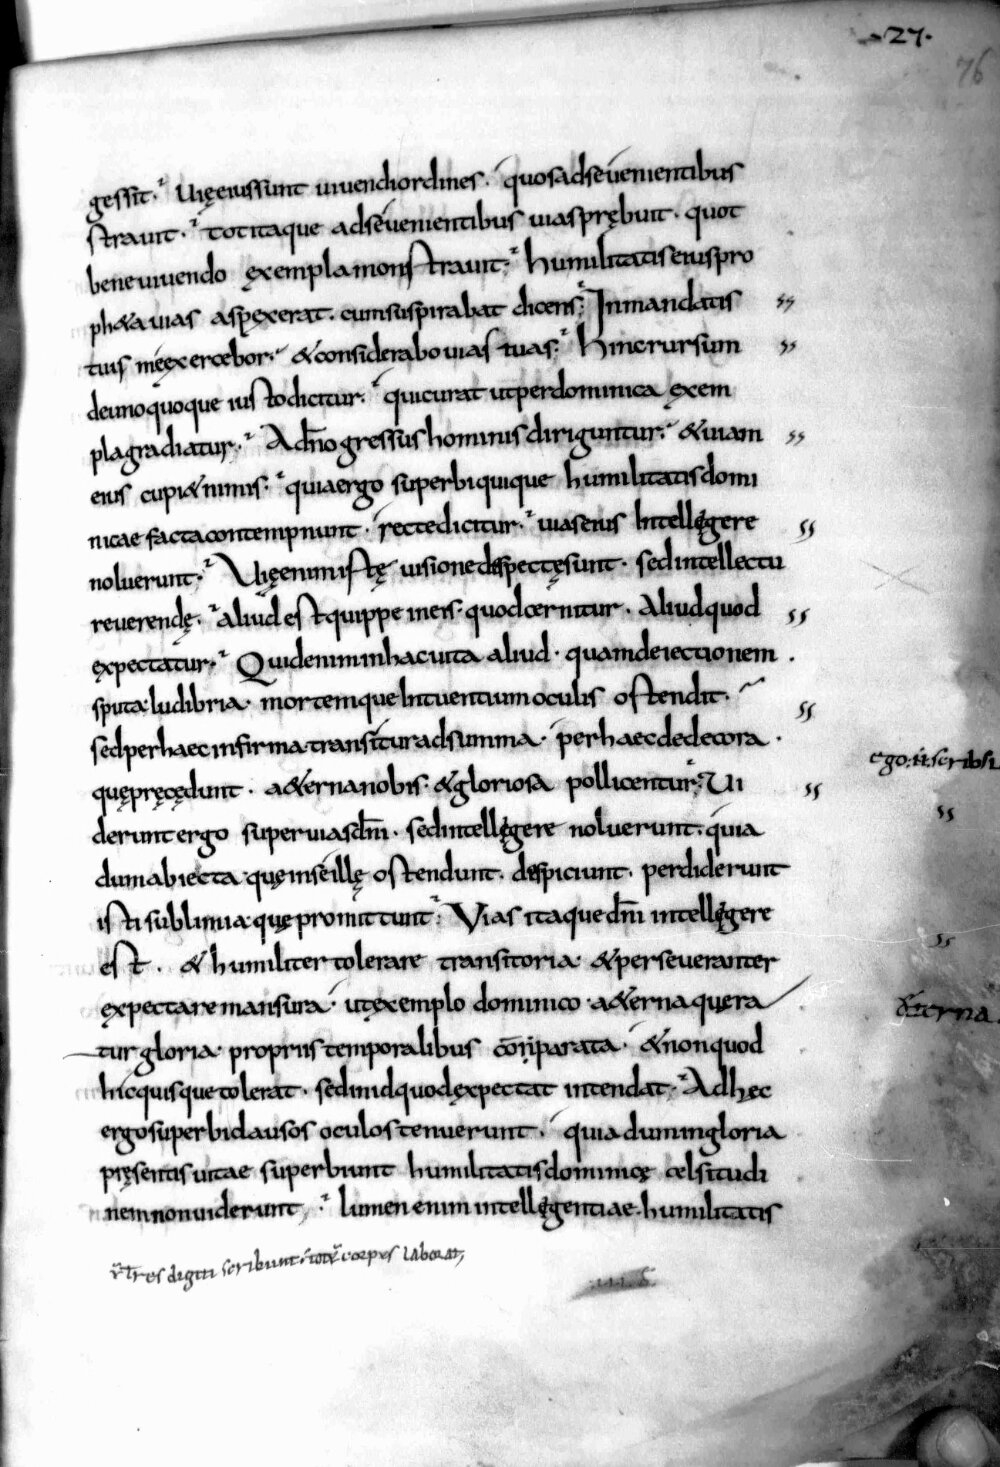 27.
76
gessit. Uięeiussunt uiuendiordines. quosadseuenientibus
strauit. totitaque adseuenientibus uiasprębuit. quot
beneuiuendo ęxemplamonstrauit. humilitatiseiuspro
ph&auias aspęxerat. cumsuspirabat dicens. Inmandatis
tuis meęxercebor. &considerabouias tuas. hincrursum
deunoquoque iustodicitur. quicurat utperdominica ęxem
plagradiatur. Adn̄ogressushominisdiriguntur. &uiam
eius cupi&nimis. quiaergo superbiquique humilitatisdomi
nicae factacontempnunt. rectedicitur. uiaseius Intellegere
noluerunt. Uięenimistę uisionedespectęsunt. sedintellectu
reuerendę. aliudestquippe ineis. quodcernitur. Aliudquod
ęxpectatur. Quideniminhacuita aliud. quamdeiectionem.
sputa. ludibria. mortemqueIntuentiumoculis ostendit.
sedperhaecinfirma. transituradsumma. perhaecdedecora.
quępręcędunt. a&ernanobis. &gloriosa pollicentur. Ui
deruntergo superuiasdn̄i. sedintellegere noluerunt. quia
dumabiecta quęinseillę ostendunt. despiciunt. perdiderunt
isti sublimia quępromittunt. Vias itaquedn̄i intellegere
est. & humilitertolerare transitoria. &perseueranter
ęxpectaremansura. utęxemplo dominico. a&ernaquera
tur gloria. propriistemporalibus comparata. &nonquod
hicquisquetolerat. sedinidquodęxpectat intendat. Adhec
ergosuperbiclausos oculostenuerunt. quiadumingloria
pręsentisuitae superbiunt humilitatisdominicę celsitudi
nemnonuiderunt. lumenenimintellegentiae. humilitatis
ego scribsi
&terna
Tres digiti scribunt. corpus laborat